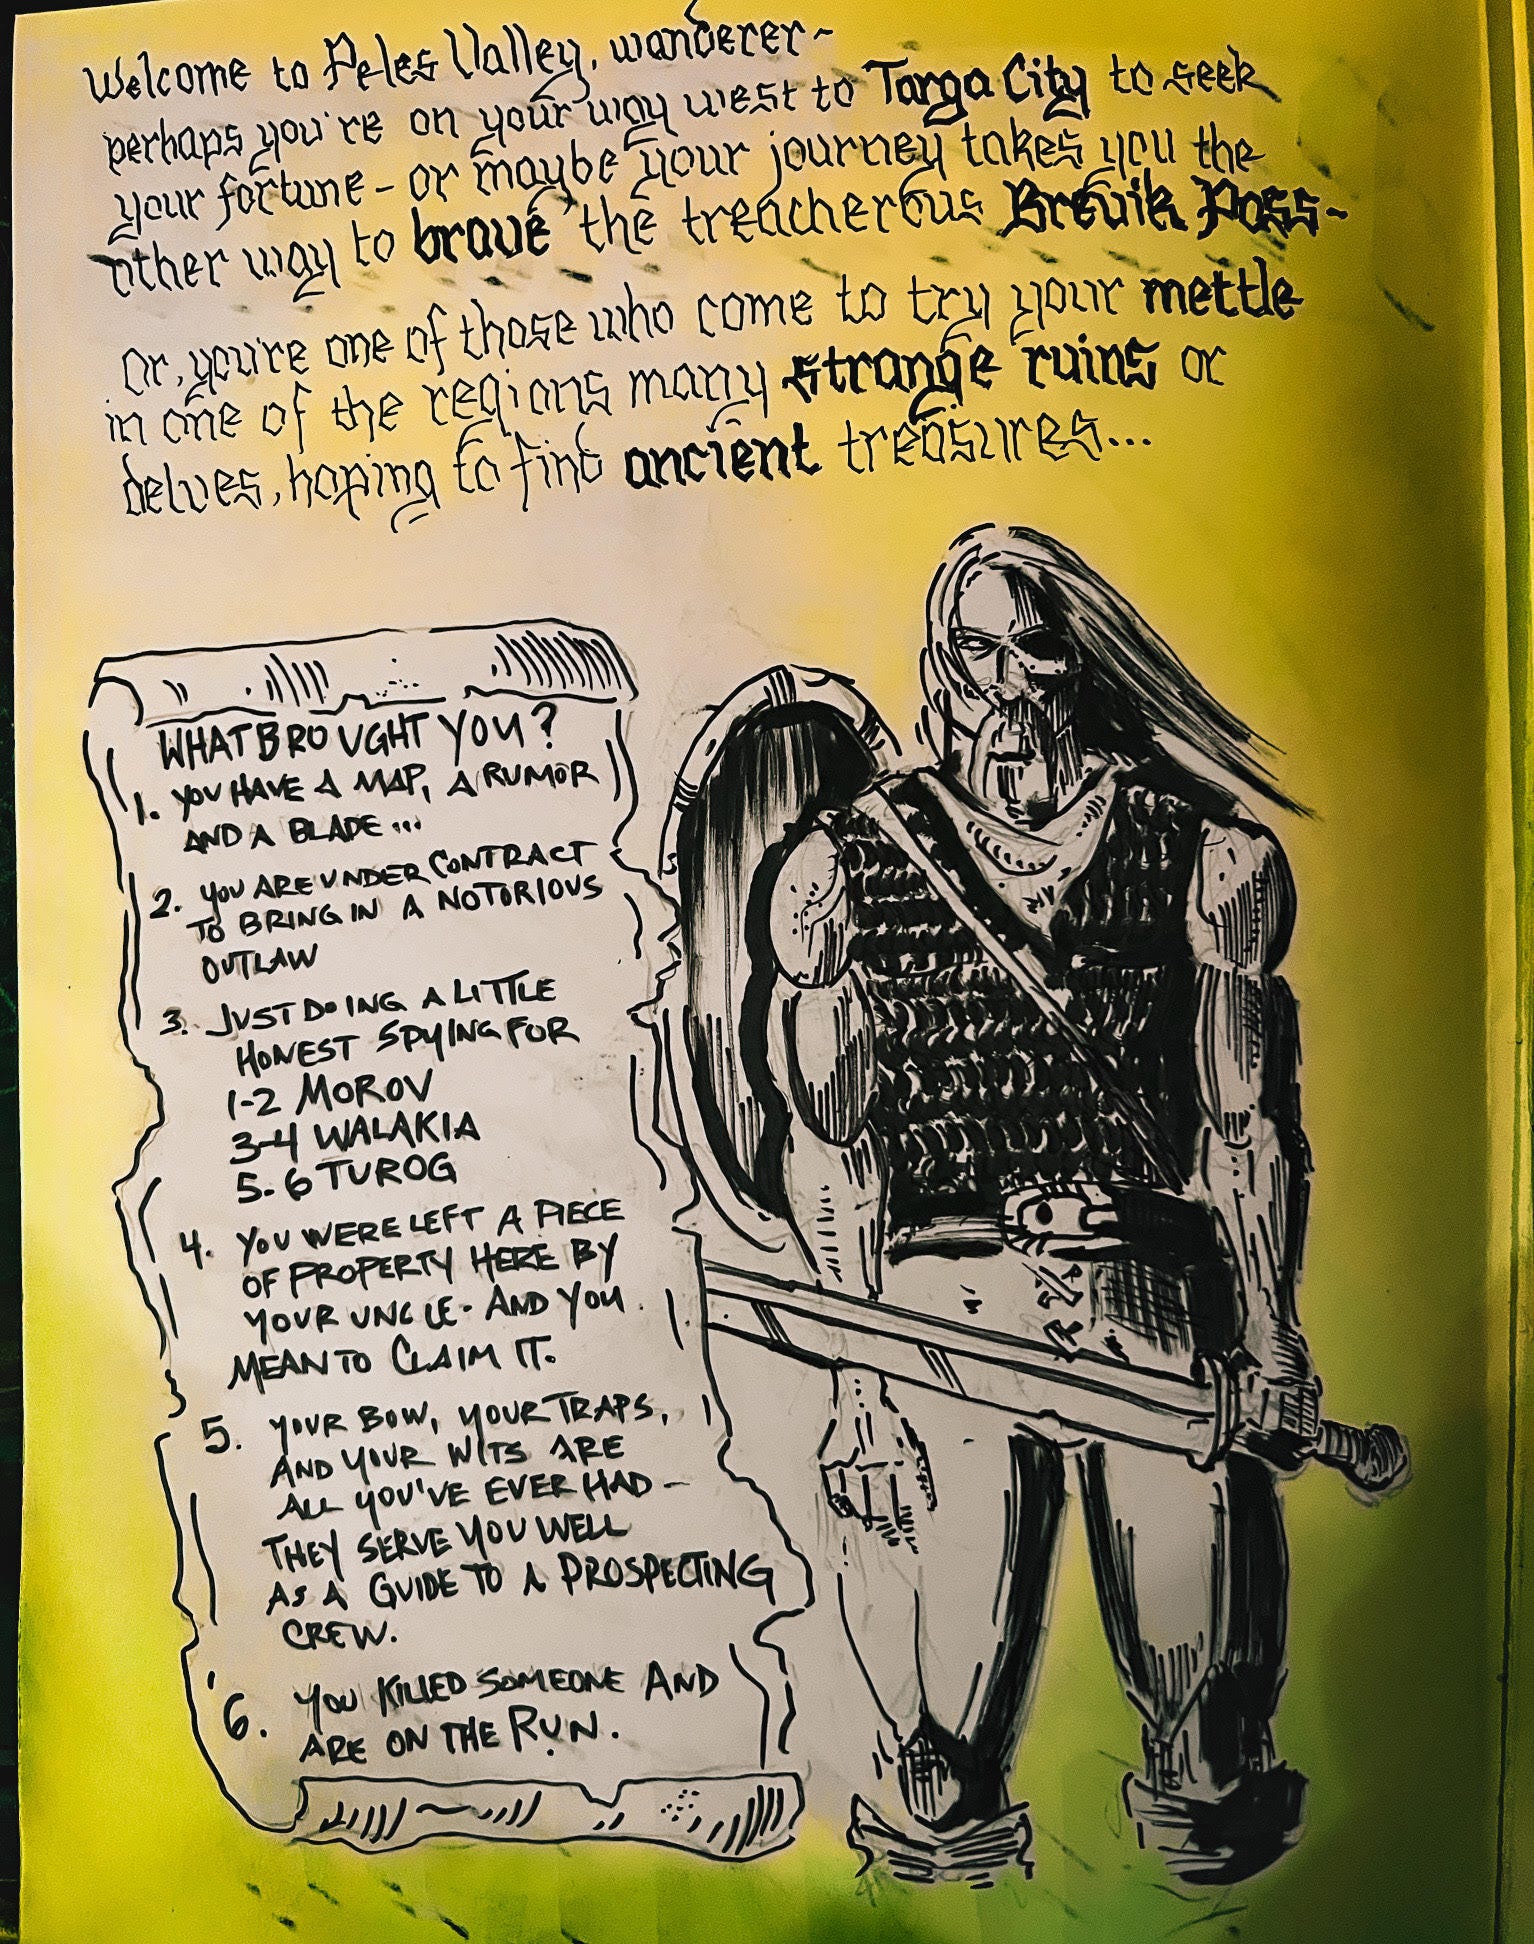 Welcome to Peles Valley, wanderer~
perhaps you're on your way west to Targa City to seek
your fortune - or maybe your journey takes you the
other way to brave the treacherous Brevik Pass~
Or, you're one of those who come to try your mettle
in one of the regions many strange ruins or
delves, hoping to find ancient treasures...
WHAT BROUGHT YOU?
1. YOU HAVE A MAP, A RUMOR
AND A BLADE...
2. YOU ARE UNDER CONTRACT
TO BRING IN A NOTORIOUS
OUTLAW
3. JUST DOING A LITTLE
HONEST SPYING FOR
1-2 MOROV
3-4 WALAKIA
5-6 TUROG
4. YOU WERE LEFT A PIECE
OF PROPERTY HERE BY
YOUR UNCLE - AND YOU
MEAN TO CLAIM IT.
5. YOUR BOW, YOUR TRAPS,
AND YOUR WITS ARE
ALL YOU'VE EVER HAD -
THEY SERVE YOU WELL
AS A GUIDE TO A PROSPECTING
CREW.
6. YOU KILLED SOMEONE AND
ARE ON THE RUN.